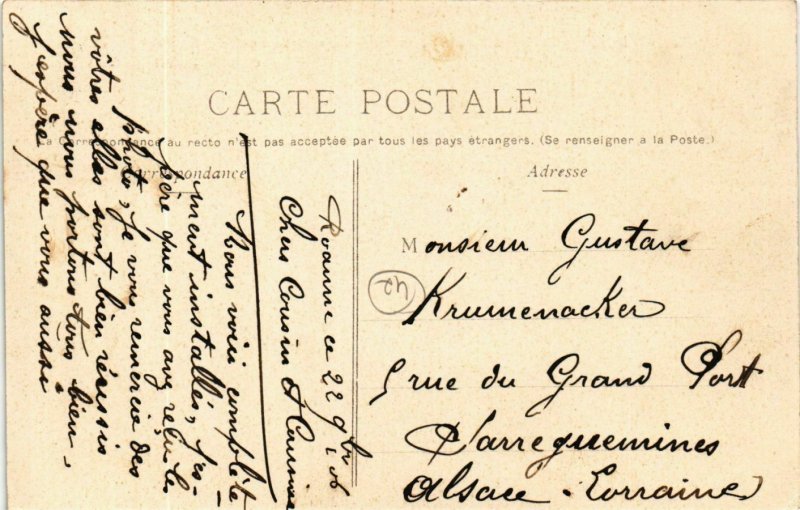 CARTE POSTALE
La Correspondance au recto n'est pas acceptée par tous les pays étrangers. (Se renseigner à la Poste.)
Correspondance
Adresse
Roanne ce 22 9bre 06
Chers Cousin & Cousine
Nous voici complète-
ment installés, j'es-
père que vous avez reçu les
photo, je vous remercie des
vôtres elles sont bien réussis
nous nous portons tous bien,
j'espère que vous aussi
Monsieur Gustave
Krumenacker
5 rue du Grand Port
Sarreguemines
Alsace-Lorraine
42